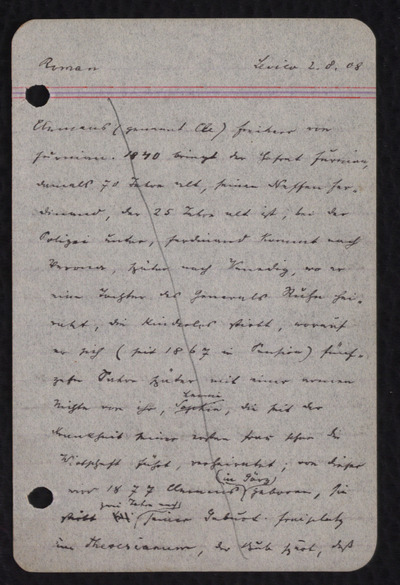 Roman Levico 2. 8. 08
Clemens (genannt Clé) Freiherr von
1840 bringt der Hofrat
damals 70 Jahre alt, seinen Neffen Fer-
dinand, der 25 Jahre alt ist, bei der
Polizei unter, Ferdinand kommt nach
Verona, später nach Venedig, wo er
eine Tochter des Generals Kuhn hei-
ratet, die kinderlos stirbt, worauf
er sich (seit 1867 in Pension) fünf-
zehn Jahre später mit einer armen
Fanni
Nichte von ihr, Sophie, die seit der
Krankheit seiner ersten Frau schon die
Wirtschaft führt, verheiratet; von dieser
(in Görz)
wird 1877 Clemens geboren, sie
zwei Jahre nach
stirbt seiner Geburt. Freiplatz
im Theresianum, der daß